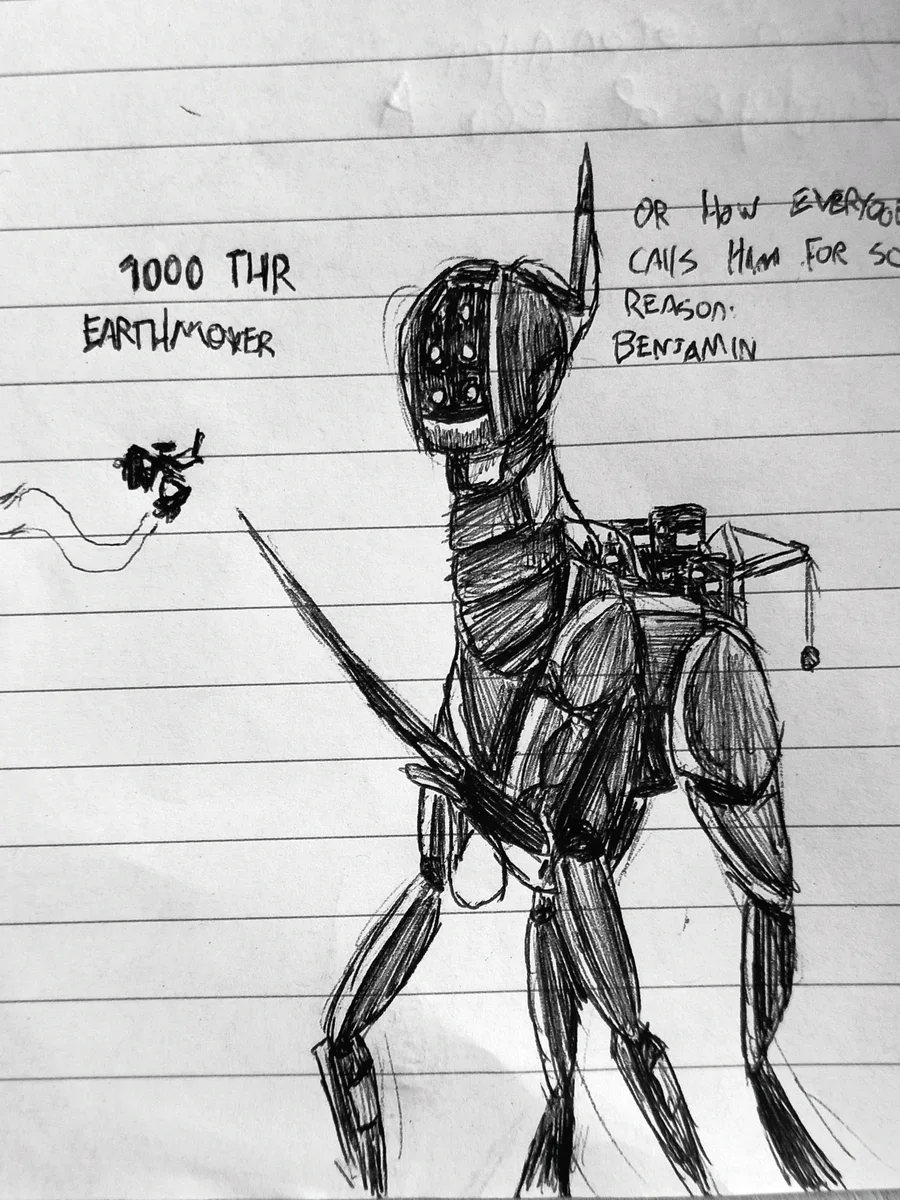 1000 THR
EARTHMOVER
OR HOW
CALLS HIM FOR
REASON:
BENJAMIN